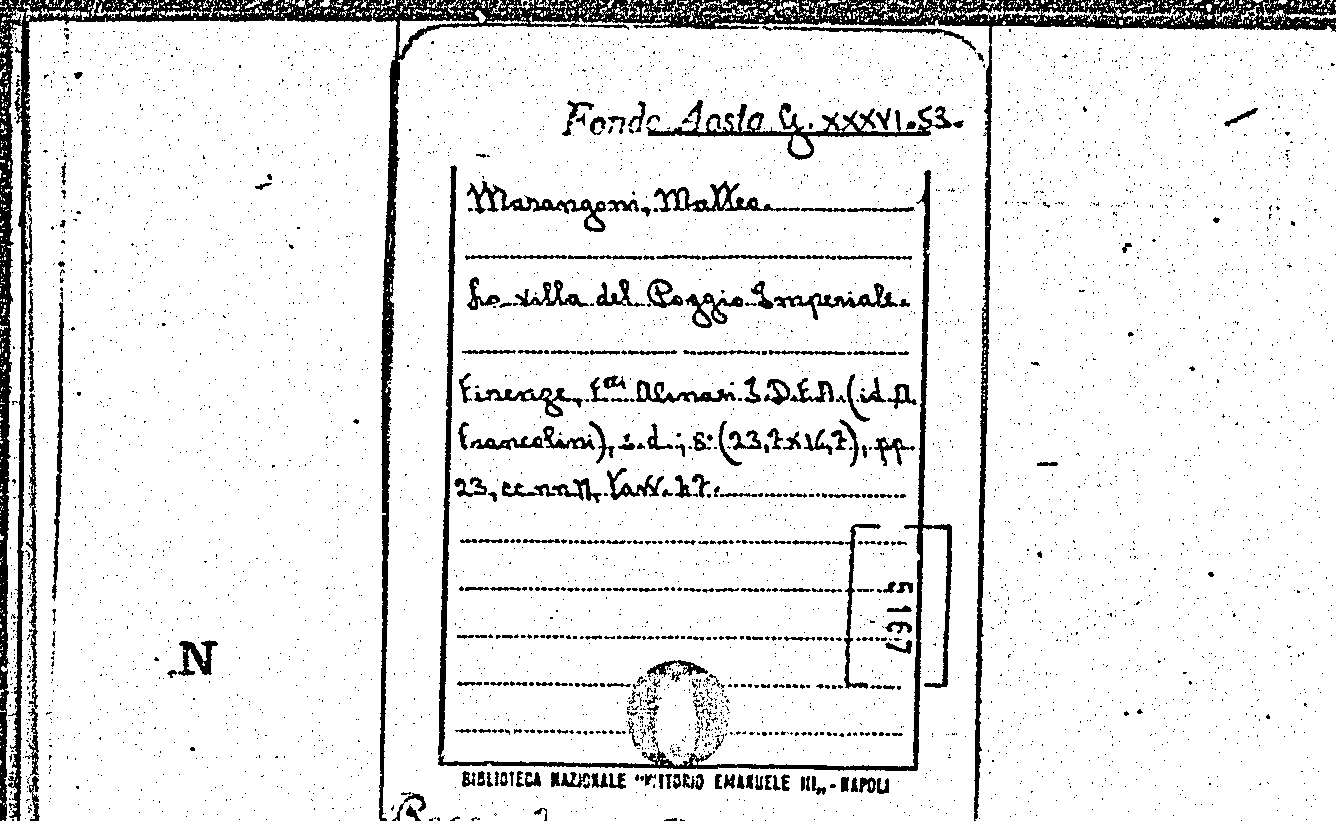 Fondo Aosta G. XXXVI.53.
Marangoni, Matteo.
La villa del Poggio Imperiale.
Firenze, F.lli Alinari I.D.E.A. (id. A.
Francolini), s.d.; 8° (23,7x16,7), pp.
23, cc. nn. n., tavv. 47.
5167
N
BIBLIOTECA NAZIONALE "VITTORIO EMANUELE III„ - NAPOLI